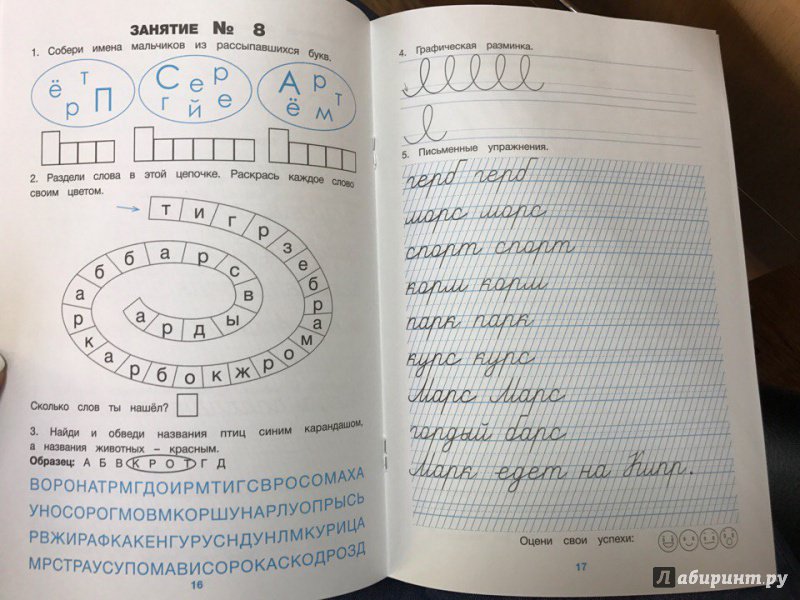 ЗАНЯТИЕ № 8
1. Собери имена мальчиков из рассыпавшихся букв.
ё т р П
С е р г й е
А р т ё м
2. Раздели слова в этой цепочке. Раскрась каждое слово
своим цветом.
тигрзебраморжкобракраббарсвыдра
Сколько слов ты нашёл?
3. Найди и обведи названия птиц синим карандашом,
а названия животных – красным.
Образец: А Б В К Р О Т Г Д
ВОРОНАТРМГДОИРМТИГСВРОСОМАХА
УНОСОРОГМОВМКОРШУНАРЛУОПРЫСЬ
РВЖИРАФКАКЕНГУРУСНДУНЛМКУРИЦА
МРСТРАУСУПОМАВИСОРОКАСКОДРОЗД
16
4. Графическая разминка.
5. Письменные упражнения.
герб герб
морс морс
спорт спорт
корм корм
парк парк
курс курс
Марс Марс
гордый барс
Марк едет на Кипр.
Оцени свои успехи:
17
Лабиринт.ру